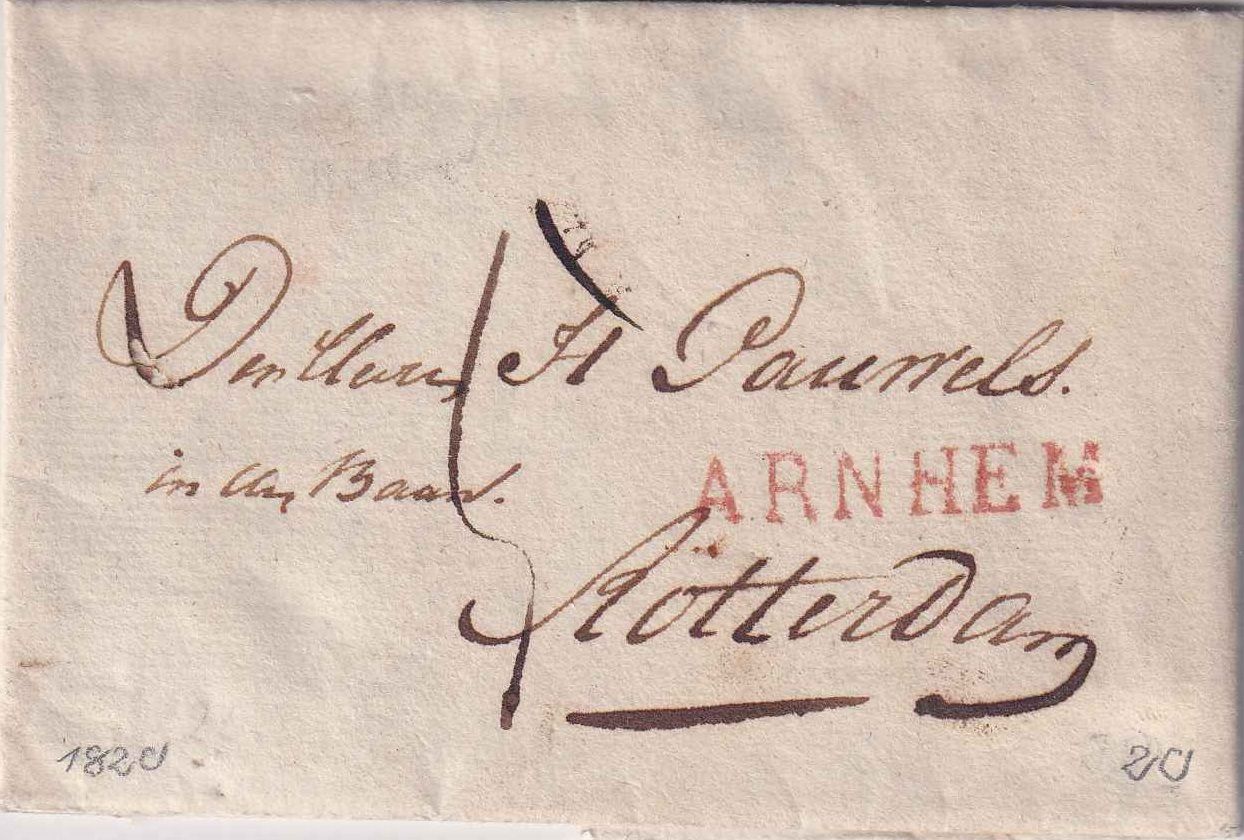 Den Heer H Pauwels.
in den Baan.
ARNHEM
Rotterdam
1820
20